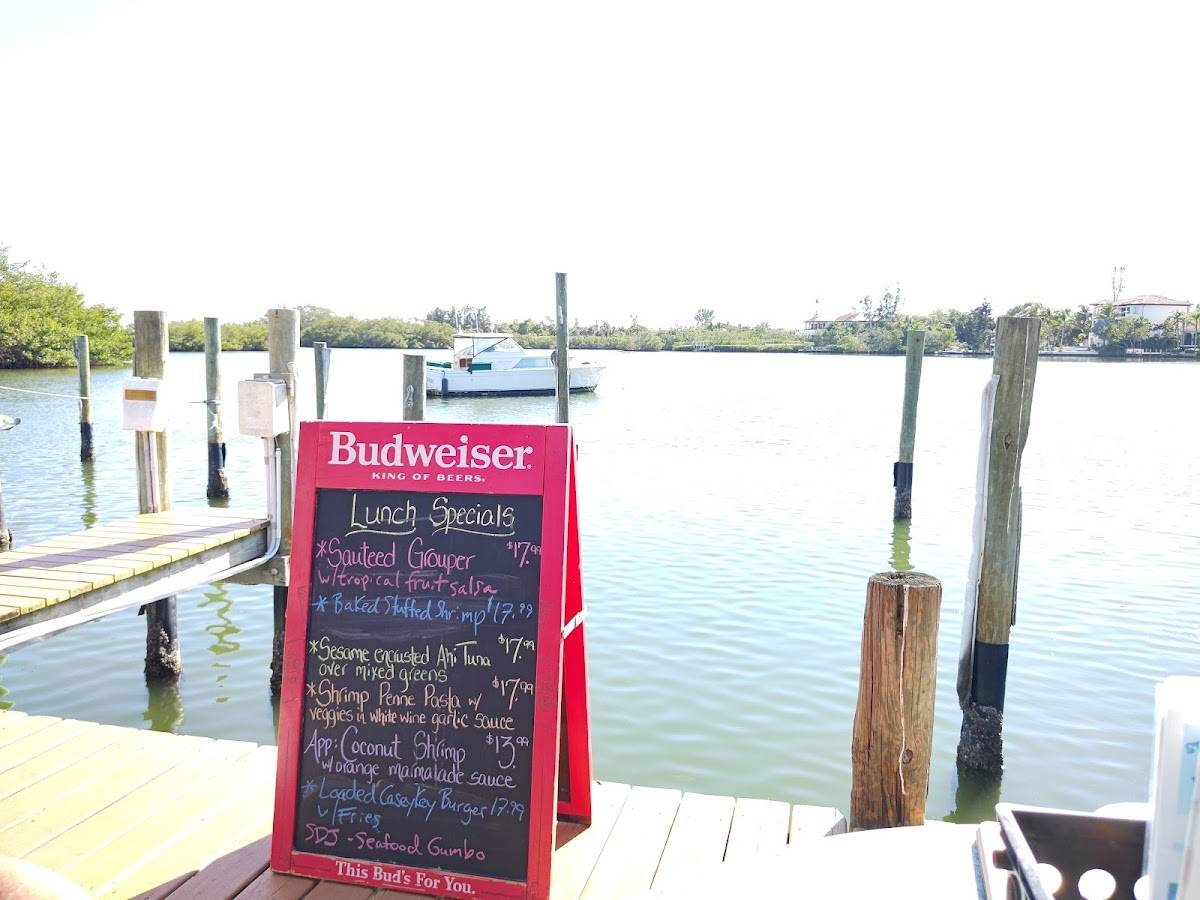 Budweiser
KING OF BEERS
Lunch Specials
*Sauteed Grouper $17.99
w/tropical fruit salsa
*Baked Stuffed Shrimp $17.99
*Sesame encrusted Ahi Tuna $17.99
over mixed greens
*Shrimp Penne Pasta w/ $17.99
veggies in white wine garlic sauce
App: Coconut Shrimp $13.99
w/orange marmalade sauce
*Loaded CaseyKey Burger 17.99
w/Fries
SDJ - Seafood Gumbo
This Bud's For You.